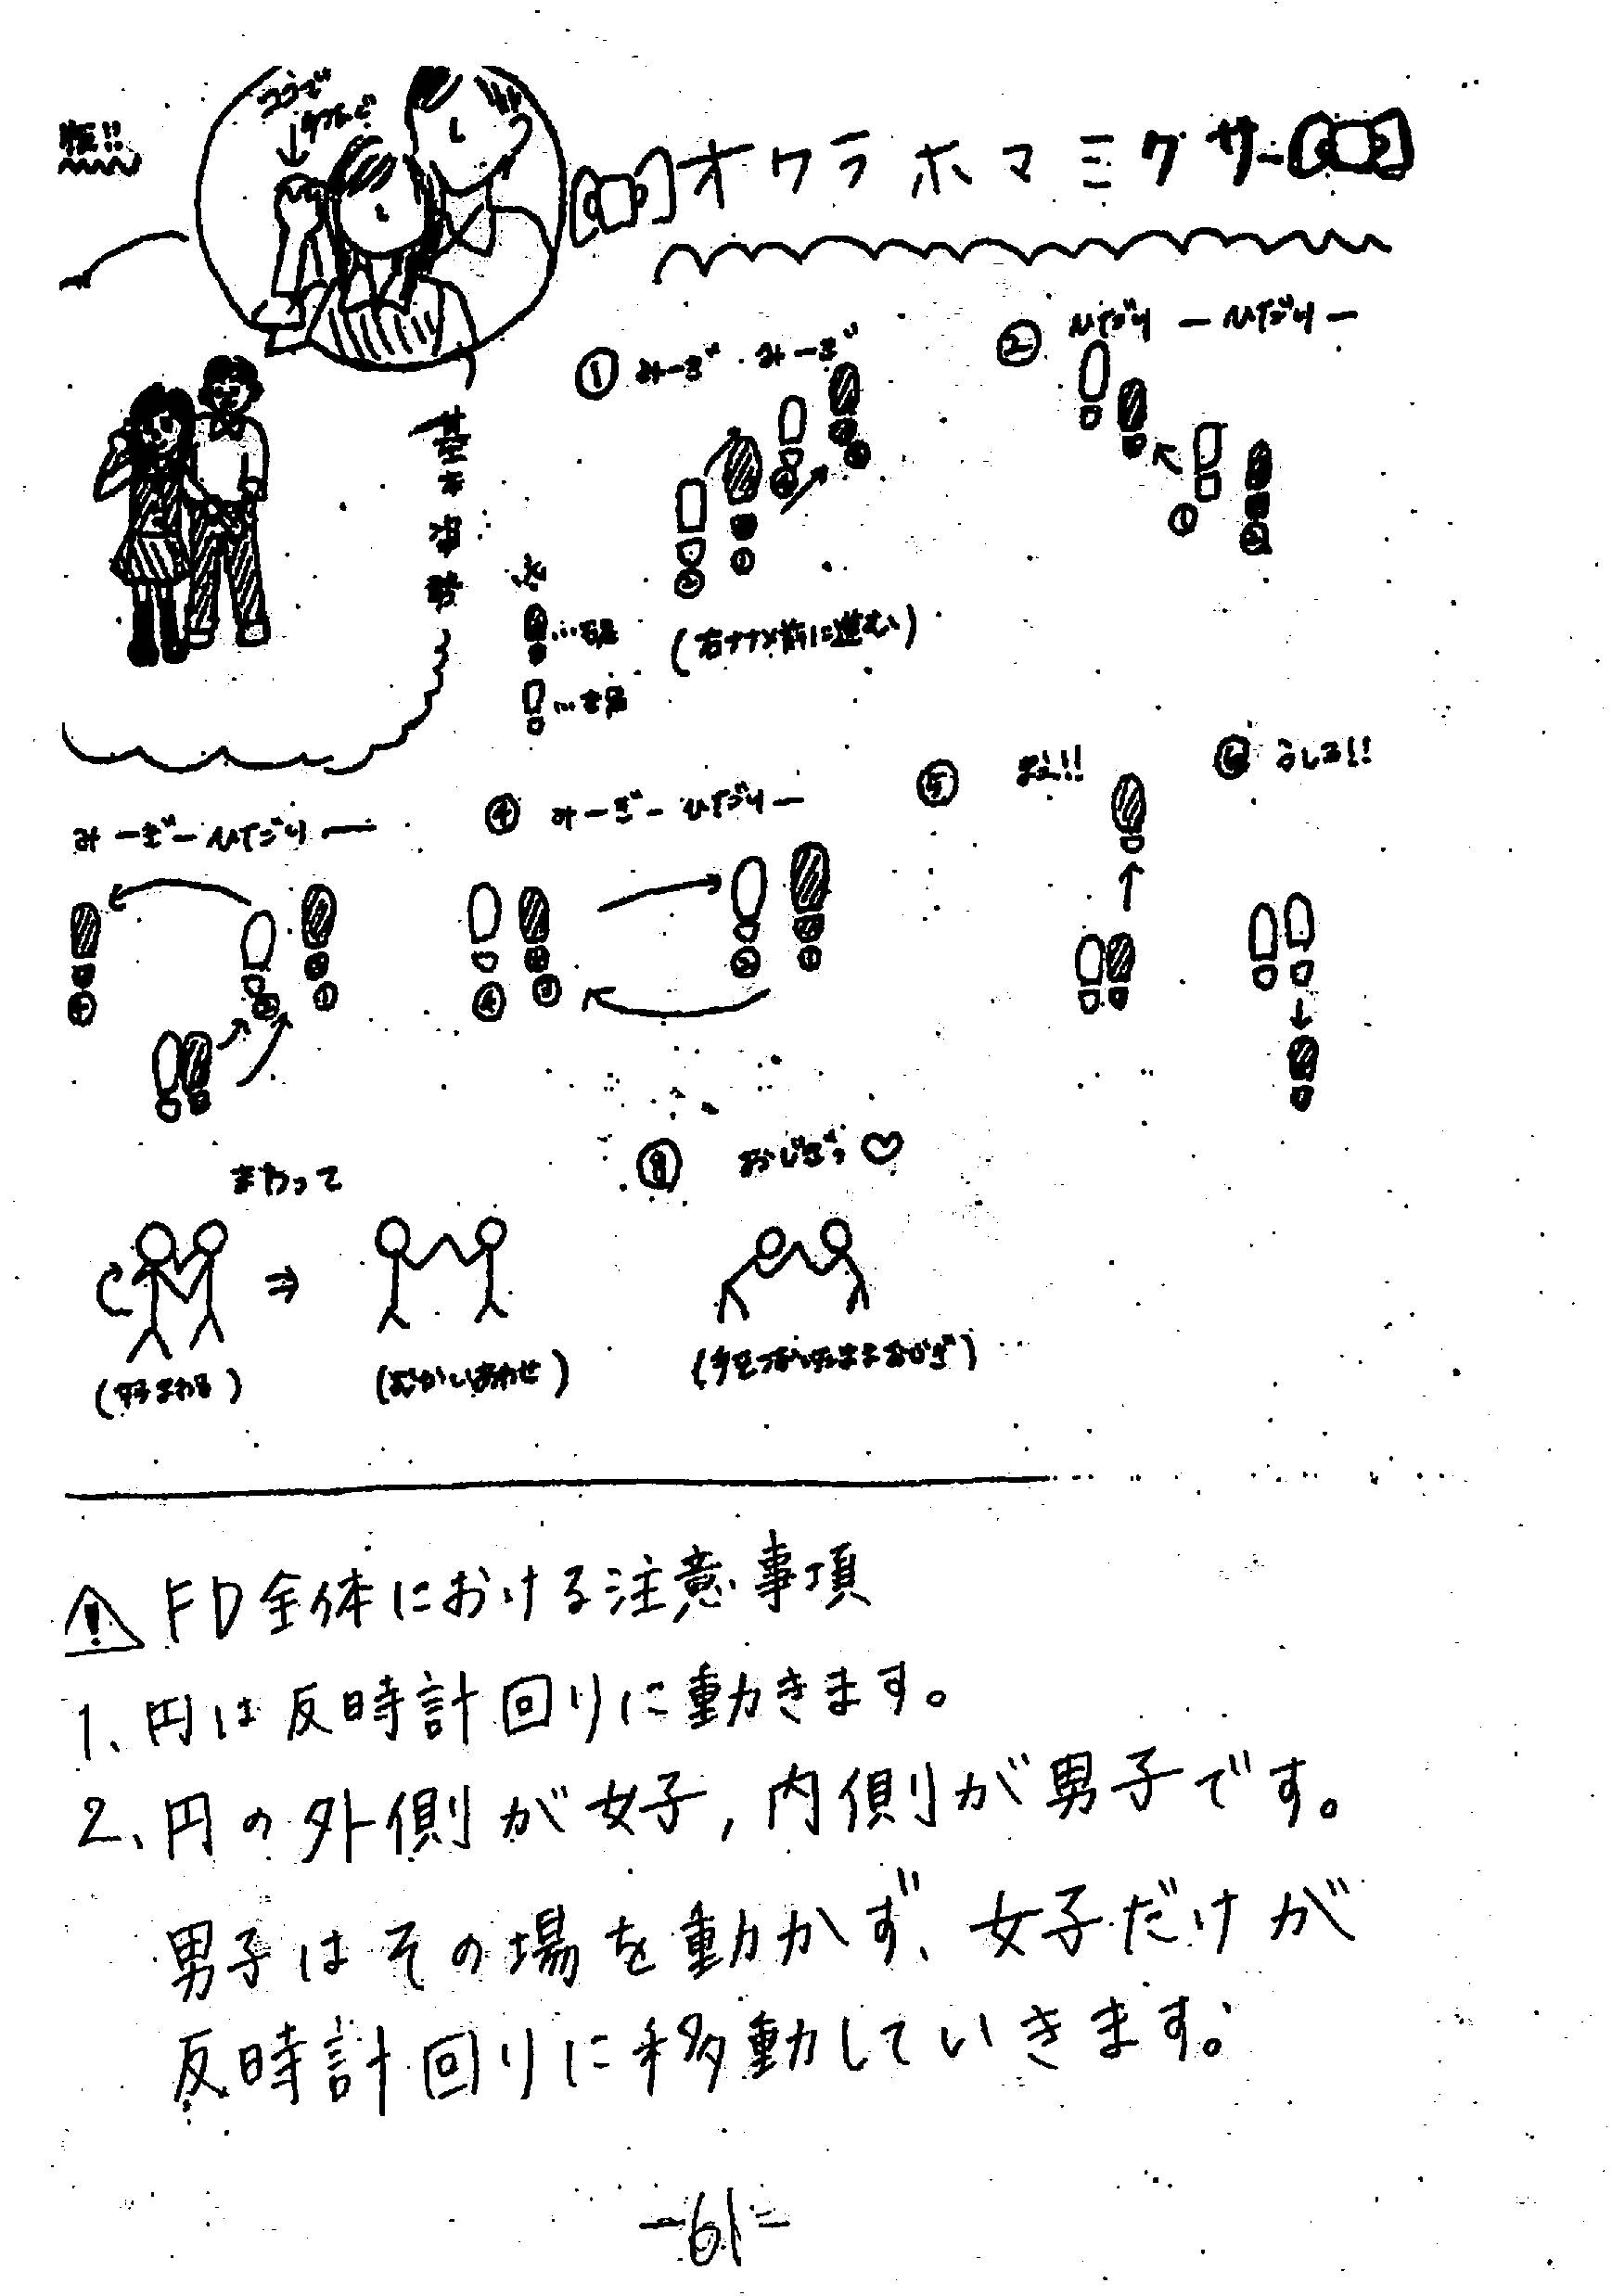 版!!
ココで
オクラホマミクサー
① みーぎ・みーぎ
② ひだりーひだりー
基本姿勢
…右足
…左足
(右ナナメ前に進む)
みーぎーひだりー
④ みーぎーひだりー
⑤ まえ!!
⑥ うしろ!!
まわって
⑧ おじぎっ♡
(むかいあわせ)
(手をつないだままおじぎ)
FD全体における注意事項
1、円は反時計回りに動きます。
2、円の外側が女子,内側が男子です。
男子はその場を動かず、女子だけが
反時計回りに移動していきます。
-61-